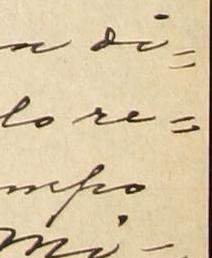 n di=
lo re=
mpo
Mi-